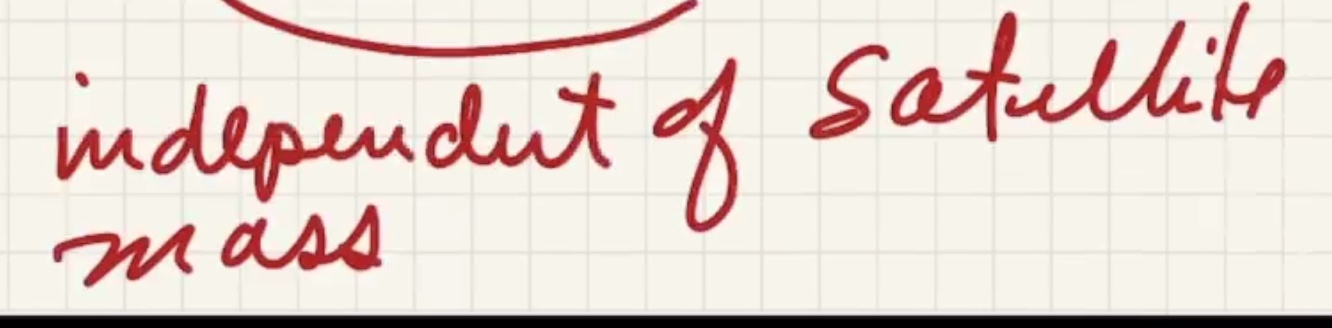 independent of satellite
mass